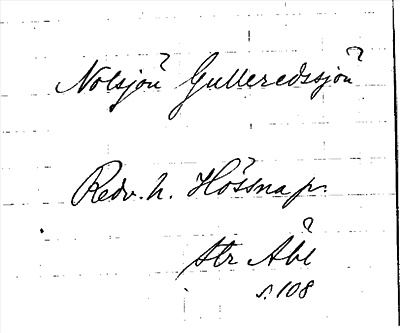 Nolsjön Gulleredssjön
Redv. h. Hössna sn.
str Åbl
s. 108